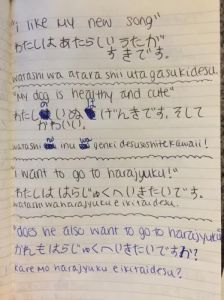 "i like my new song"
わたしはあたらしいうたが
すきです。
watashi wa atara shii uta ga suki desu.
"my dog is healthy and cute"
の は
わたし いぬ げんきです。そして
かわいい。
watashi inu genki desu soshite kawaii!
"I want to go to harajyuku!"
わたしははらじゅくへいきたいです。
watashi wa harajyuku e ikitai desu.
"does he also want to go to harajyuku
かれもはらじゅくへいきたいですか?
kare mo harajyuku e ikitai desu ka?